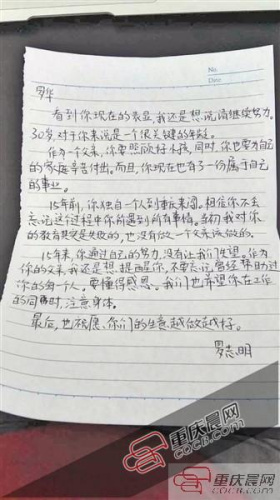 No.
Date
罗华
看到你现在的表显,我还是想说请继续努力。
30岁,对于你来说是一个很关键的年龄。
作为一个父亲,你要照顾好小孩,同时,你也要为自己
的家庭辛苦付出。而且,你现在也有了一份属于自己
的事业。
15年前,你独自一个人到重庆来闯。相信你不会
忘记这个过程中你所遇到所有事情。当初我对你
的教育是失败的,也没有做一个父亲该做的。
15年来,你通过自己的努力,没有让我们失望。作为
你的父亲,我还是想提醒你,不要忘记曾经帮助过
你的每一个人,要懂得感恩。我们也希望你在工作
的同时,注意身体。
最后,也祝愿你们的生意越做越好。
罗志明
重庆晨网
COCB.COM
重庆晨网
COCB.COM